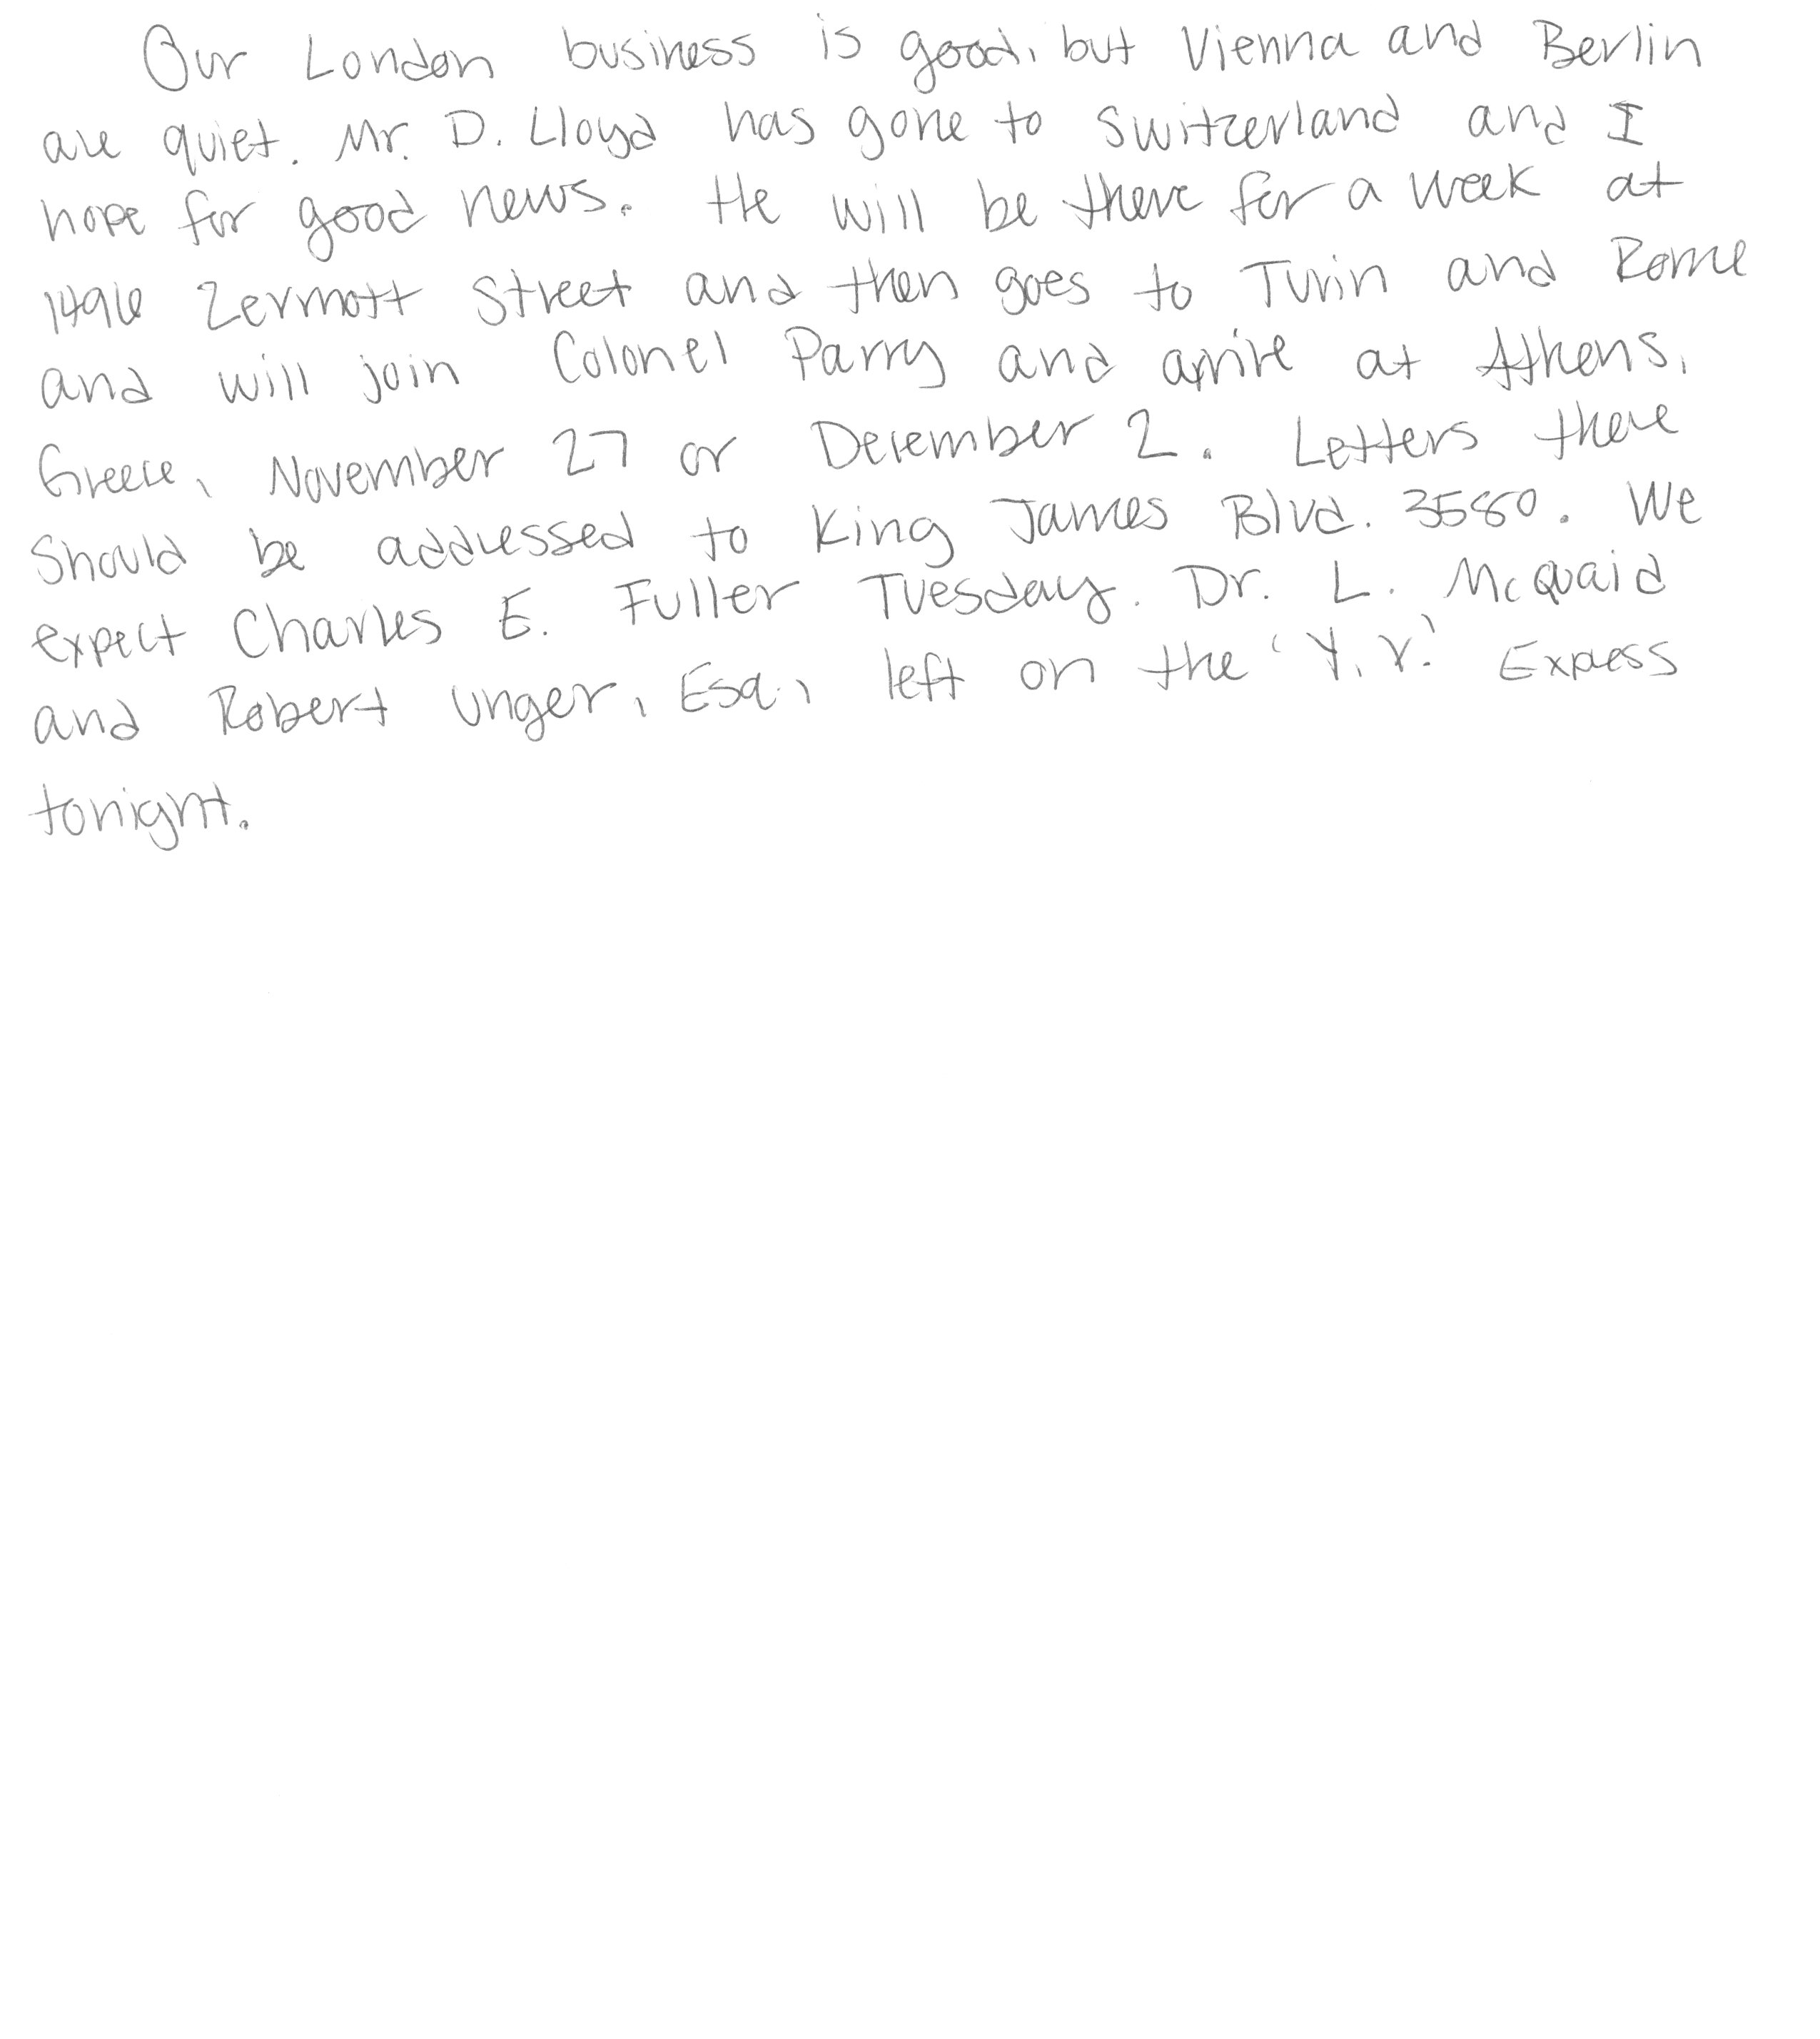 Our London business is good, but Vienna and Berlin
are quiet. Mr. D. Lloyd has gone to Switzerland and I
hope for good news. He will be there for a week at
1496 Zermott Street and then goes to Turin and Rome
and will join Colonel Parry and arrive at Athens,
Greece, November 27 or December 2. Letters there
should be addressed to King James Blvd. 3580. We
expect Charles E. Fuller Tuesday. Dr. L. McQuaid
and Robert Unger, Esq., left on the 'Y.X.' Express
tonight.